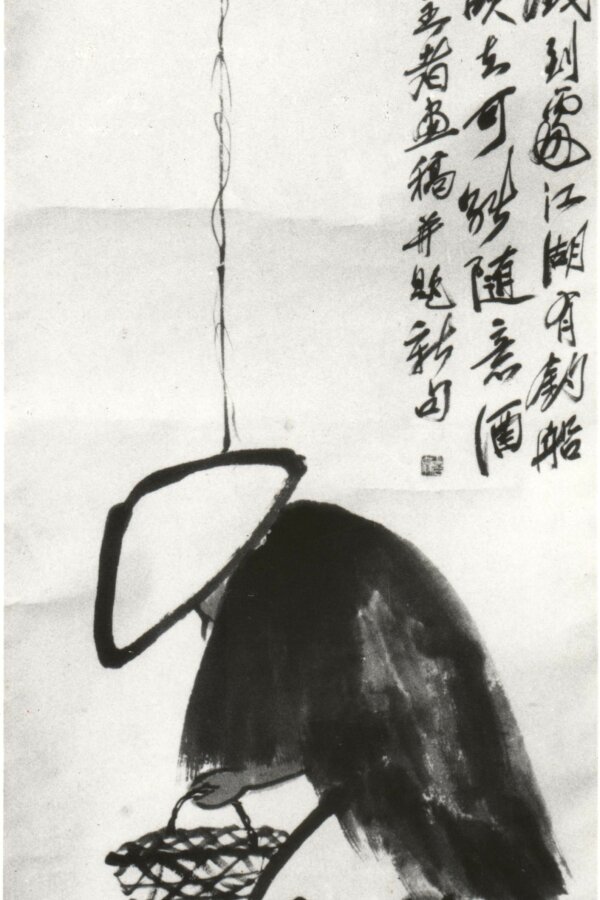 到處江湖有釣船
去可能隨意酒
者畫稿并題新句